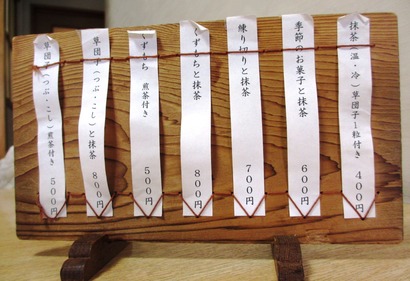 抹茶(温・冷)草団子1粒付き 400円
季節のお菓子と抹茶 600円
練り切りと抹茶 700円
くずもちと抹茶 800円
くずもち 煎茶付き 500円
草団子(つぶ・こし)と抹茶 800円
草団子(つぶ・こし)煎茶付き 500円